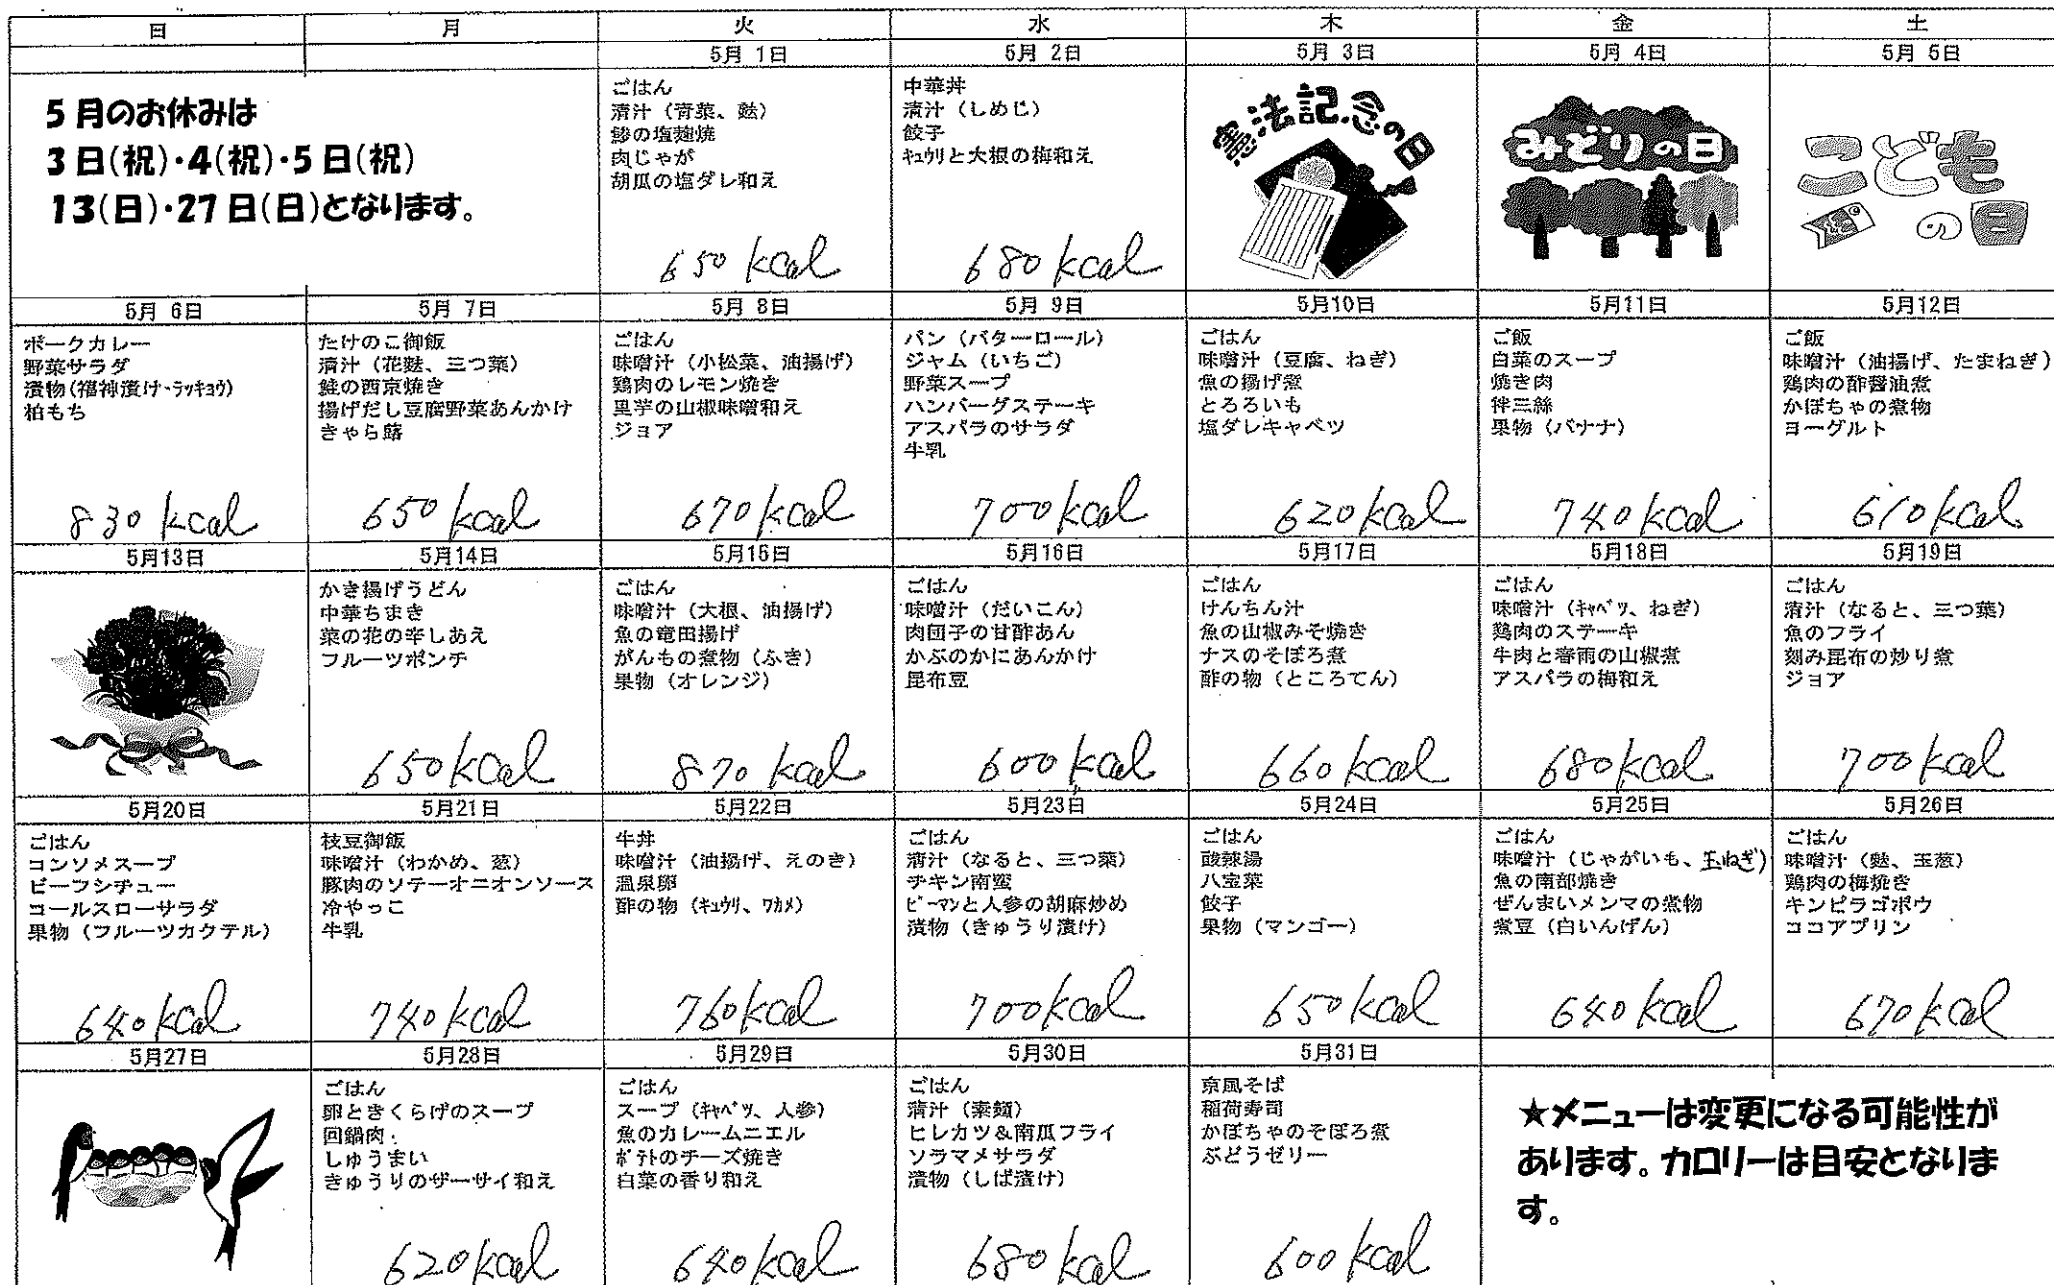 日 月 火 水 木 金 土
5月 1日 5月 2日 5月 3日 5月 4日 5月 5日
5月のお休みは
3日(祝)・4(祝)・5日(祝)
13(日)・27日(日)となります。
ごはん
清汁（青菜、麩）
鯵の塩麹焼
肉じゃが
胡瓜の塩ダレ和え
650 kcal
中華丼
清汁（しめじ）
餃子
キュウリと大根の梅和え
680 kcal
憲法記念の日
みどりの日
こども
の日
5月 6日 5月 7日 5月 8日 5月 9日 5月10日 5月11日 5月12日
ポークカレー
野菜サラダ
漬物(福神漬け・ラッキョウ)
柏もち
830 kcal
たけのこ御飯
清汁（花麩、三つ葉）
鮭の西京焼き
揚げだし豆腐野菜あんかけ
きゃら蕗
650 kcal
ごはん
味噌汁（小松菜、油揚げ）
鶏肉のレモン焼き
里芋の山椒味噌和え
ジョア
670 kcal
パン（バターロール）
ジャム（いちご）
野菜スープ
ハンバーグステーキ
アスパラのサラダ
牛乳
700 kcal
ごはん
味噌汁（豆腐、ねぎ）
魚の揚げ煮
とろろいも
塩ダレキャベツ
620 kcal
ご飯
白菜のスープ
焼き肉
拌三絲
果物（バナナ）
740 kcal
ご飯
味噌汁（油揚げ、たまねぎ）
鶏肉の酢醤油煮
かぼちゃの煮物
ヨーグルト
610 kcal
5月13日 5月14日 5月15日 5月16日 5月17日 5月18日 5月19日
かき揚げうどん
中華ちまき
菜の花の辛しあえ
フルーツポンチ
650 kcal
ごはん
味噌汁（大根、油揚げ）
魚の竜田揚げ
がんもの煮物（ふき）
果物（オレンジ）
870 kcal
ごはん
味噌汁（だいこん）
肉団子の甘酢あん
かぶのかにあんかけ
昆布豆
600 kcal
ごはん
けんちん汁
魚の山椒みそ焼き
ナスのそぼろ煮
酢の物（ところてん）
660 kcal
ごはん
味噌汁（キャベツ、ねぎ）
鶏肉のステーキ
牛肉と春雨の山椒煮
アスパラの梅和え
680 kcal
ごはん
清汁（なると、三つ葉）
魚のフライ
刻み昆布の炒り煮
ジョア
700 kcal
5月20日 5月21日 5月22日 5月23日 5月24日 5月25日 5月26日
ごはん
コンソメスープ
ビーフシチュー
コールスローサラダ
果物（フルーツカクテル）
640 kcal
枝豆御飯
味噌汁（わかめ、葱）
豚肉のソテーオニオンソース
冷やっこ
牛乳
740 kcal
牛丼
味噌汁（油揚げ、えのき）
温泉卵
酢の物（キュウリ、ワカメ）
760 kcal
ごはん
清汁（なると、三つ葉）
チキン南蛮
ピーマンと人参の胡麻炒め
漬物（きゅうり漬け）
700 kcal
ごはん
酸辣湯
八宝菜
餃子
果物（マンゴー）
650 kcal
ごはん
味噌汁（じゃがいも、玉ねぎ）
魚の南部焼き
ぜんまいメンマの煮物
煮豆（白いんげん）
640 kcal
ごはん
味噌汁（麩、玉葱）
鶏肉の梅焼き
キンピラゴボウ
ココアプリン
670 kcal
5月27日 5月28日 5月29日 5月30日 5月31日
ごはん
卵ときくらげのスープ
回鍋肉
しゅうまい
きゅうりのザーサイ和え
620 kcal
ごはん
スープ（キャベツ、人参）
魚のカレームニエル
ポテトのチーズ焼き
白菜の香り和え
640 kcal
ごはん
清汁（素麺）
ヒレカツ&南瓜フライ
ソラマメサラダ
漬物（しば漬け）
680 kcal
京風そば
稲荷寿司
かぼちゃのそぼろ煮
ぶどうゼリー
600 kcal
★メニューは変更になる可能性が
あります。カロリーは目安となりま
す。